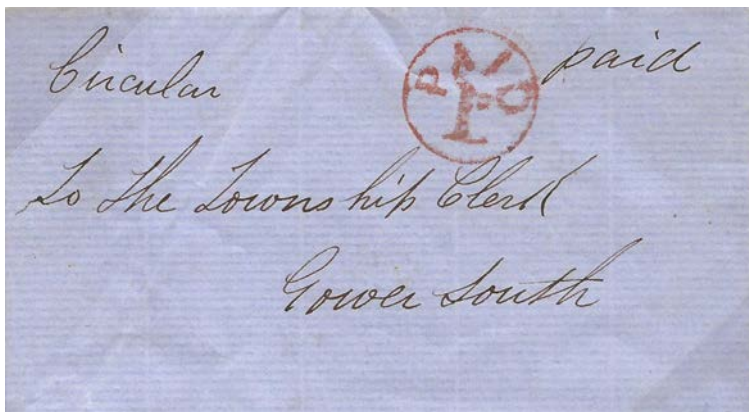 Circular PAID 1 paid
To The Township Clerk
Gower South